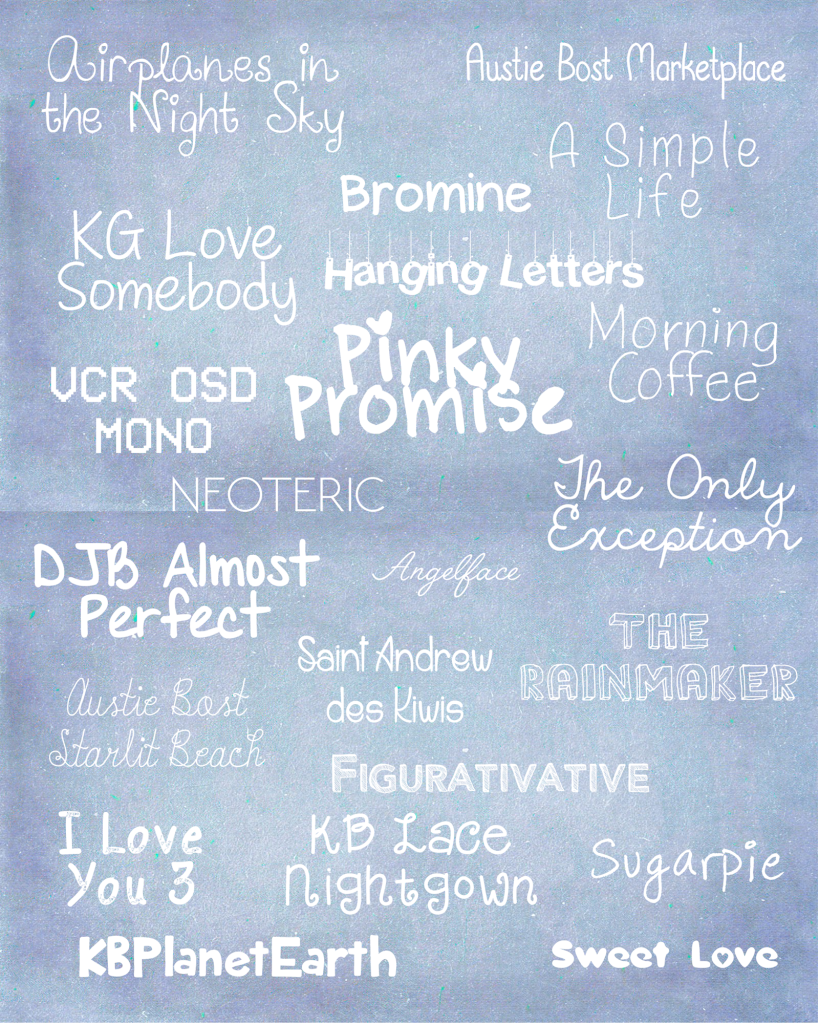 Airplanes in
the Night Sky
Austie Bost Marketplace
A Simple
Life
Bromine
KG Love
Somebody
Hanging Letters
Morning
Coffee
Pinky
Promise
VCR OSD
MONO
NEOTERIC
The Only
Exception
DJB Almost
Perfect
Angelface
THE
RAINMAKER
Saint Andrew
des Kiwis
Austie Bost
Starlit Beach
FIGURATIVATIVE
I Love
You 3
KB Lace
Nightgown
Sugarpie
KBPlanetEarth
Sweet Love